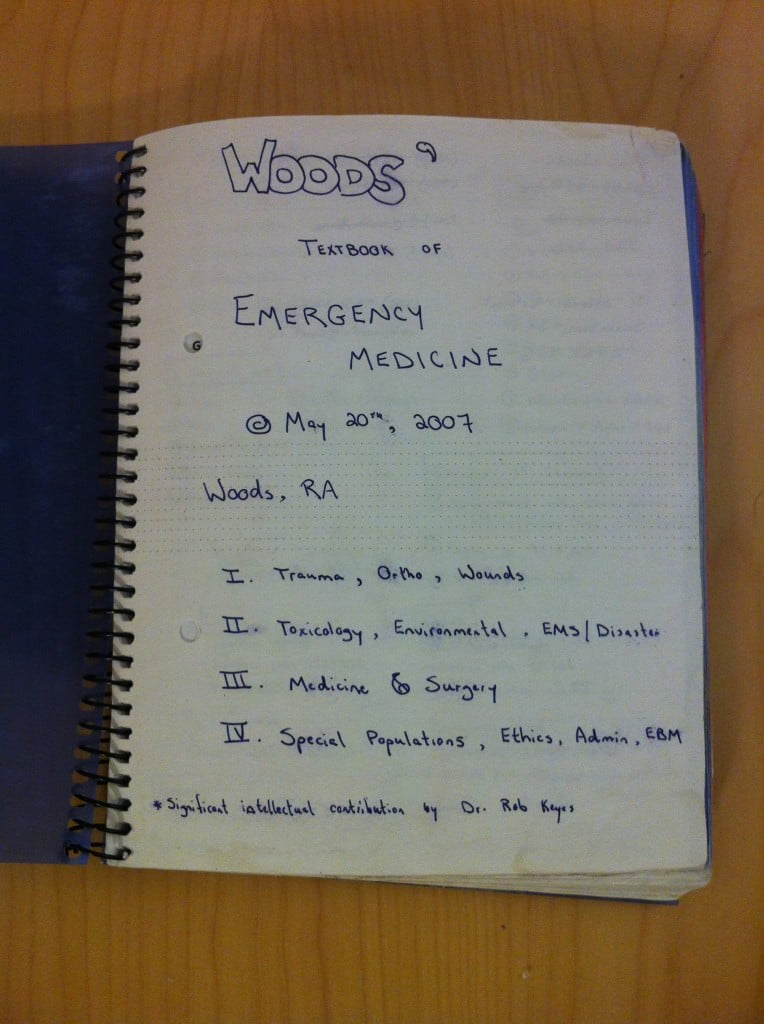 WOODS'
TEXTBOOK OF
EMERGENCY
MEDICINE
@ May 20th, 2007
G
Woods, RA
I. Trauma, Ortho, Wounds
II. Toxicology, Environmental, EMS/Disaster
III. Medicine & Surgery
IV. Special Populations, Ethics, Admin, EBM
*Significant intellectual contribution by Dr. Rob Keyes